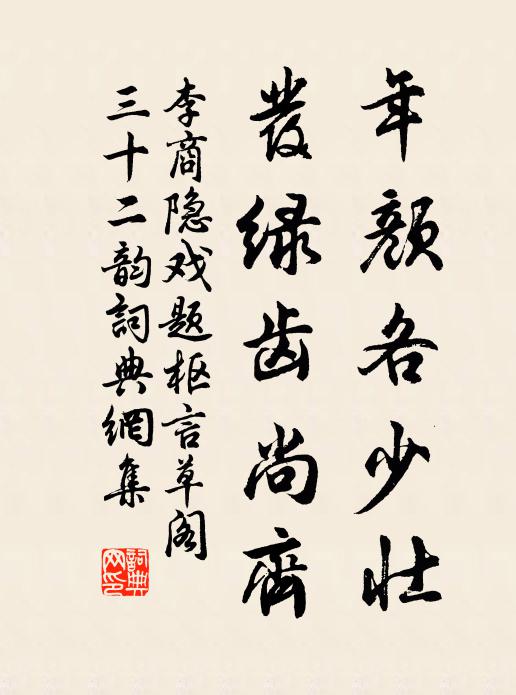 年颜各少壮
发绿齿尚齐
李商隐戏题枢言草阁
三十二韵詞典網集
詞典网印